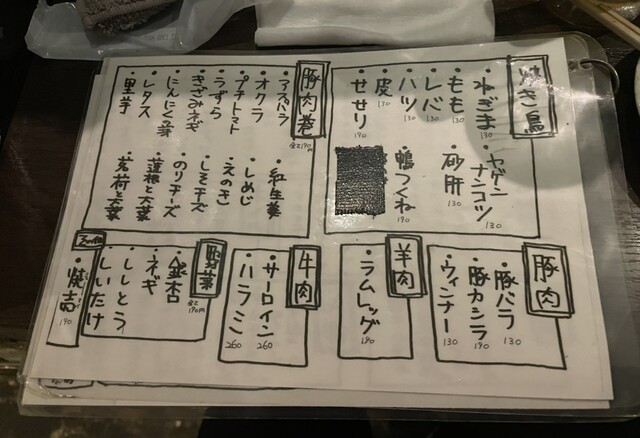 焼き鳥
・ねぎま 130
・もも 130
・レバ 130
・ハツ 130
・皮 130
・せせり 190
・ヤゲン
ナンコツ 130
・砂肝 130
・鴨つくね 190
豚肉巻 全て190円
・アスパラ
・オクラ
・プチトマト
・うずら
・きざみネギ
・にんにく芽
・レタス
・里芋
・紅生姜
・しめじ
・えのき
・しそチーズ
・のりチーズ
・蓮根と大葉
・茗荷と大葉
豚肉
・豚バラ 130
・豚カシラ 190
・ウィンナー 130
羊肉
・ラムレッグ 190
牛肉
・サーロイン 260
・ハラミ 260
野菜 全て190円
・銀杏
・ネギ
・ししとう
・しいたけ
・焼き 190